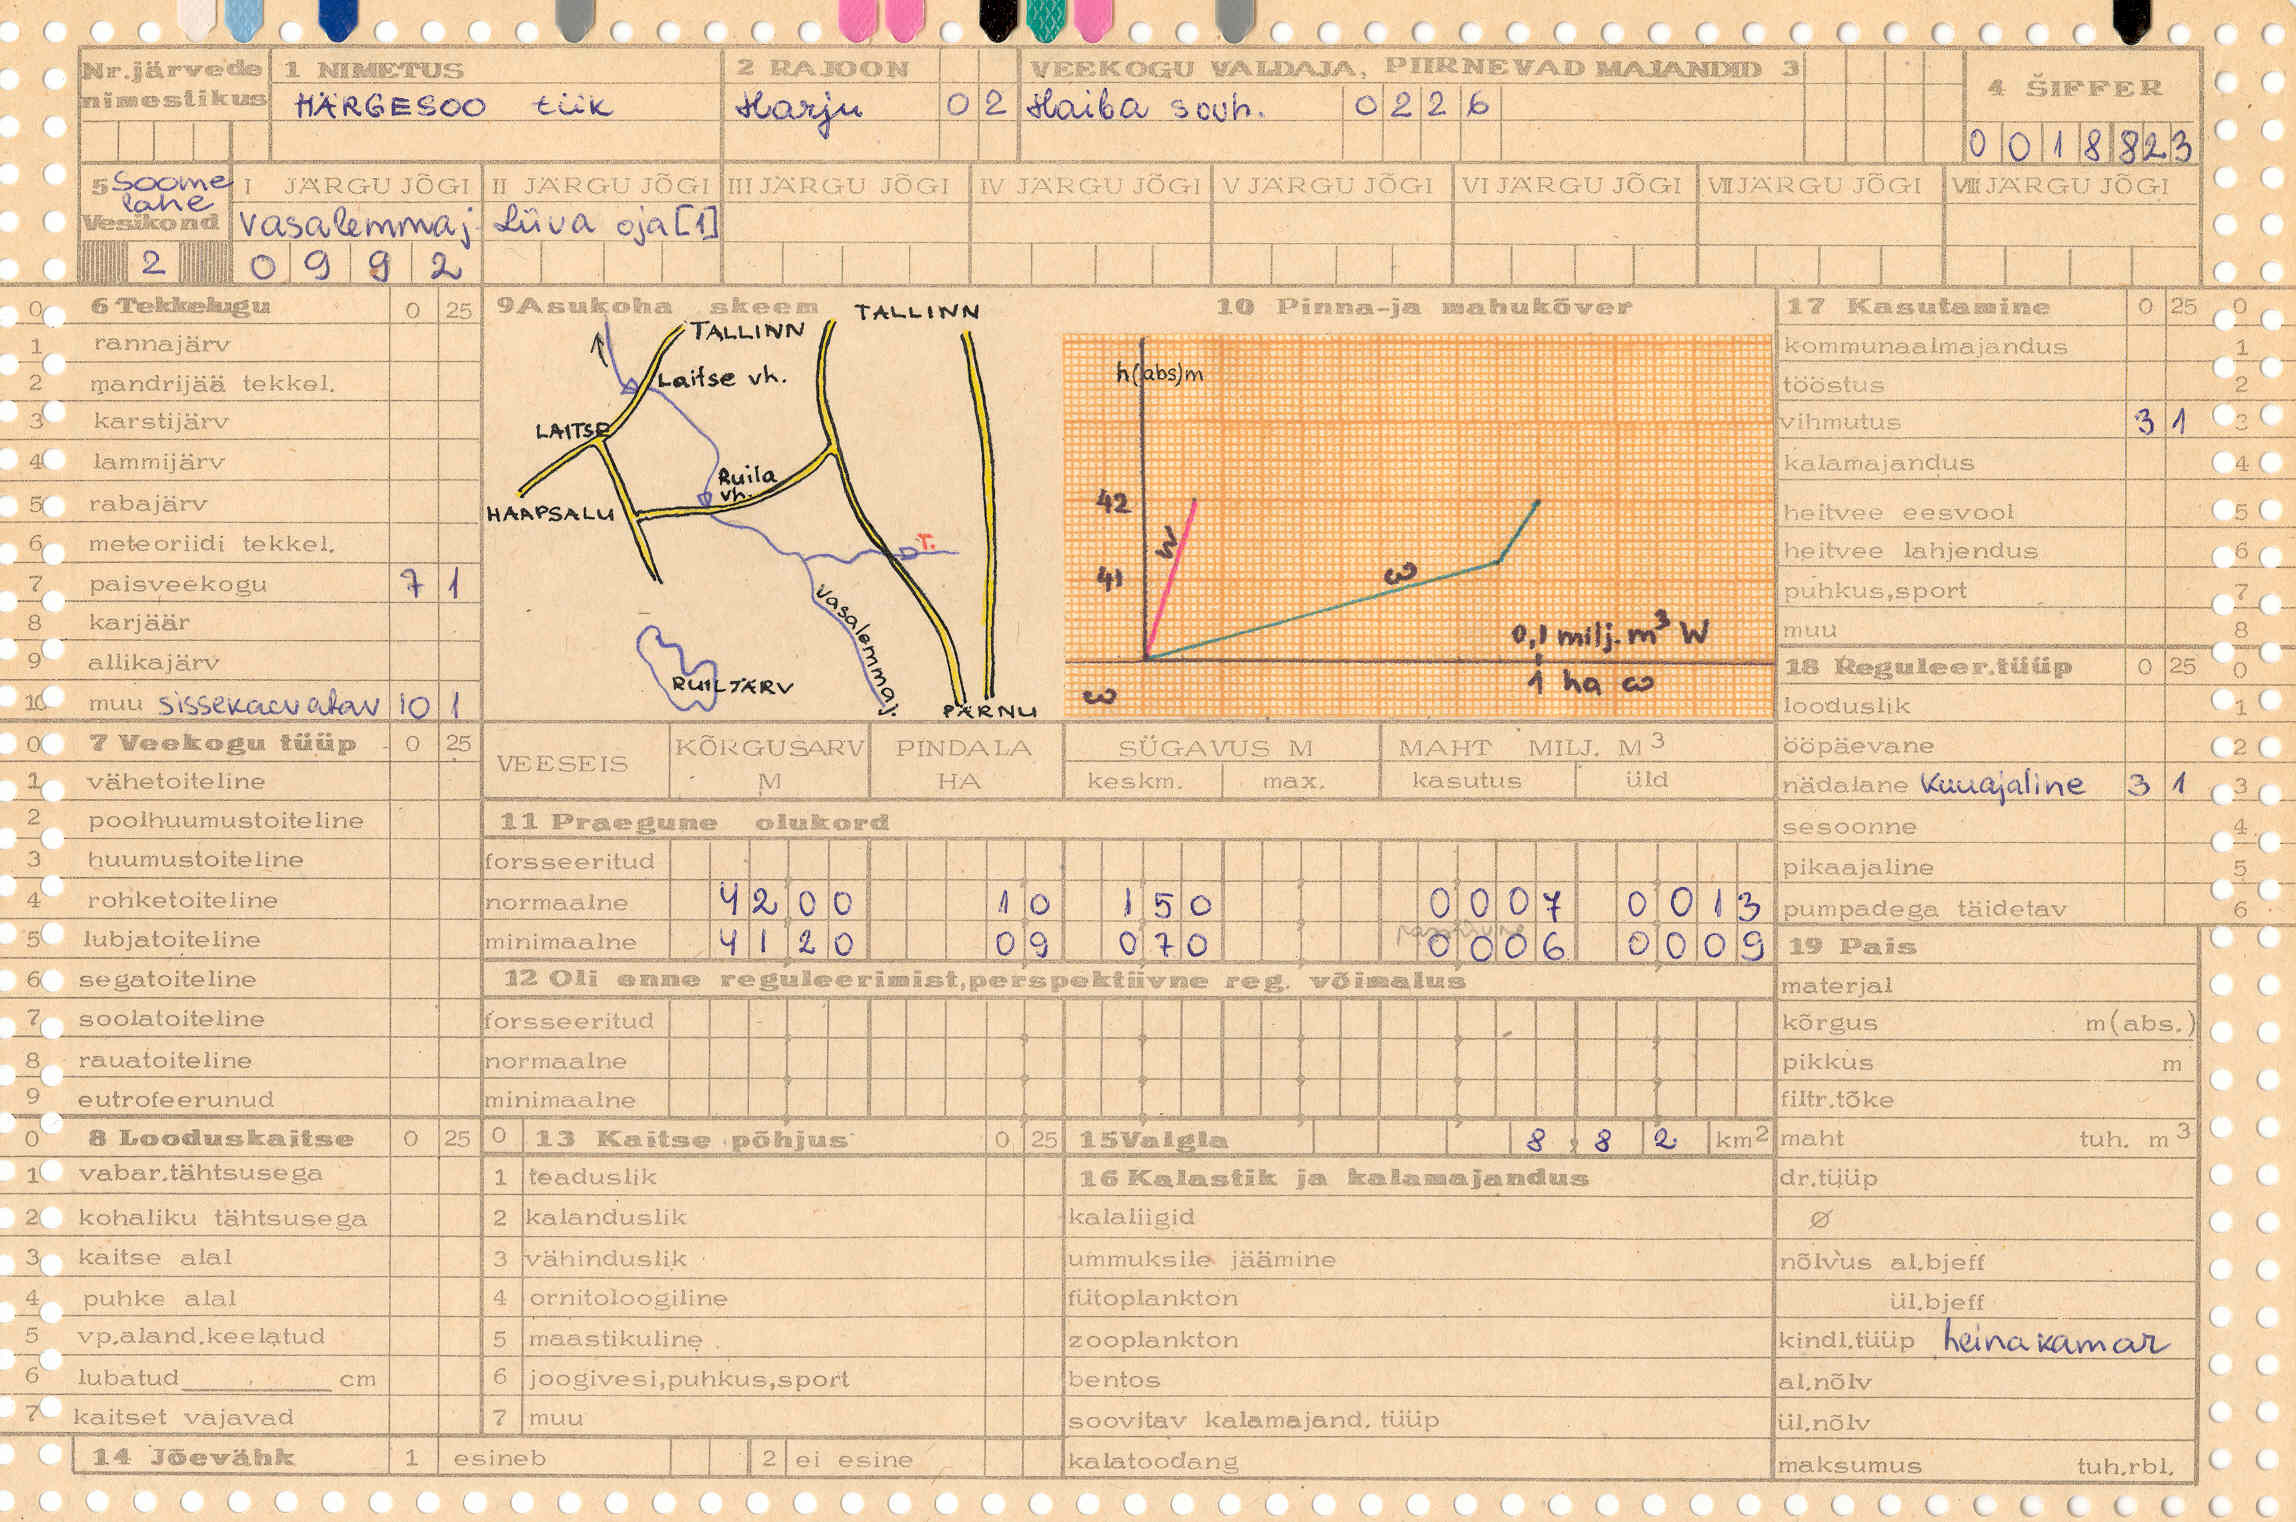 Nr.järvede nimestikus
1 NIMETUS
HÄRGESOO tiik
2 RAJOON
Harju 02
VEEKOGU VALDAJA, PIIRNEVAD MAJANDID 3
Haiba sovh. 0226
4 ŠIFFER
0018823
5 Soome lahe
Vesikond
2
I JÄRGU JÕGI
Vasalemmaj.
0992
II JÄRGU JÕGI
Liiva oja [1]
III JÄRGU JÕGI
IV JÄRGU JÕGI
V JÄRGU JÕGI
VI JÄRGU JÕGI
VII JÄRGU JÕGI
VIII JÄRGU JÕGI
0 6 Tekkelugu 0 25
1 rannajärv
2 mandrijää tekkel.
3 karstijärv
4 lammijärv
5 rabajärv
6 meteoriidi tekkel.
7 paisveekogu 7 1
8 karjäär
9 allikajärv
10 muu sissekaevatav 10 1
0 7 Veekogu tüüp 0 25
1 vähetoiteline
2 poolhuumustoiteline
3 huumustoiteline
4 rohketoiteline
5 lubjatoiteline
6 segatoiteline
7 soolatoiteline
8 rauatoiteline
9 eutrofeerunud
0 8 Looduskaitse 0 25
1 vabar.tähtsusega
2 kohaliku tähtsusega
3 kaitse alal
4 puhke alal
5 vp.aland.keelatud
6 lubatud cm
7 kaitset vajavad
14 Jõevähk 1 esineb 2 ei esine
9 Asukoha skeem
TALLINN
TALLINN
Laitse vh.
LAITSE
Ruila vh.
HAAPSALU
T.
Vasalemmaj.
RUILJÄRV
PÄRNU
10 Pinna-ja mahukõver
h(abs)m
42
W
41
ω
0,1 milj. m³ W
1 ha ω
ω
VEESEIS
KÕRGUSARV M
PINDALA HA
SÜGAVUS M
keskm. max.
MAHT MILJ. M³
kasutus üld
11 Praegune olukord
forsseeritud
normaalne 4200 10 150 0007 0013
minimaalne 4120 09 070 0006 0009
12 Oli enne reguleerimist,perspektiivne reg. võimalus
forsseeritud
normaalne
minimaalne
0 13 Kaitse põhjus 0 25
1 teaduslik
2 kalanduslik
3 vähinduslik
4 ornitoloogiline
5 maastikuline
6 joogivesi,puhkus,sport
7 muu
15 Valgla 8,82 km²
16 Kalastik ja kalamajandus
kalaliigid
ummuksile jäämine
fütoplankton
zooplankton
bentos
soovitav kalamajand. tüüp
kalatoodang
17 Kasutamine 0 25 0
kommunaalmajandus 1
tööstus 2
vihmutus 3 1 3
kalamajandus 4
heitvee eesvool 5
heitvee lahjendus 6
puhkus,sport 7
muu 8
18 Reguleer.tüüp 0 25 0
looduslik 1
ööpäevane 2
nädalane Kuuajaline 3 1 3
sesoonne 4
pikaajaline 5
pumpadega täidetav 6
19 Pais
materjal
kõrgus m(abs.)
pikkus m
filtr.tõke
maht tuh. m³
dr.tüüp
Ø
nõlvus al.bjeff
ül.bjeff
kindl.tüüp heinakamar
al.nõlv
ül.nõlv
maksumus tuh.rbl.